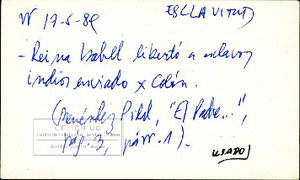 W 17-5-89 ESCLAVITUD
- Reina Isabel libertó a esclavos
indios enviado x Colón.
(Menéndez Pidal, "El Padre..",
pág 3, párr. 1).
USADO